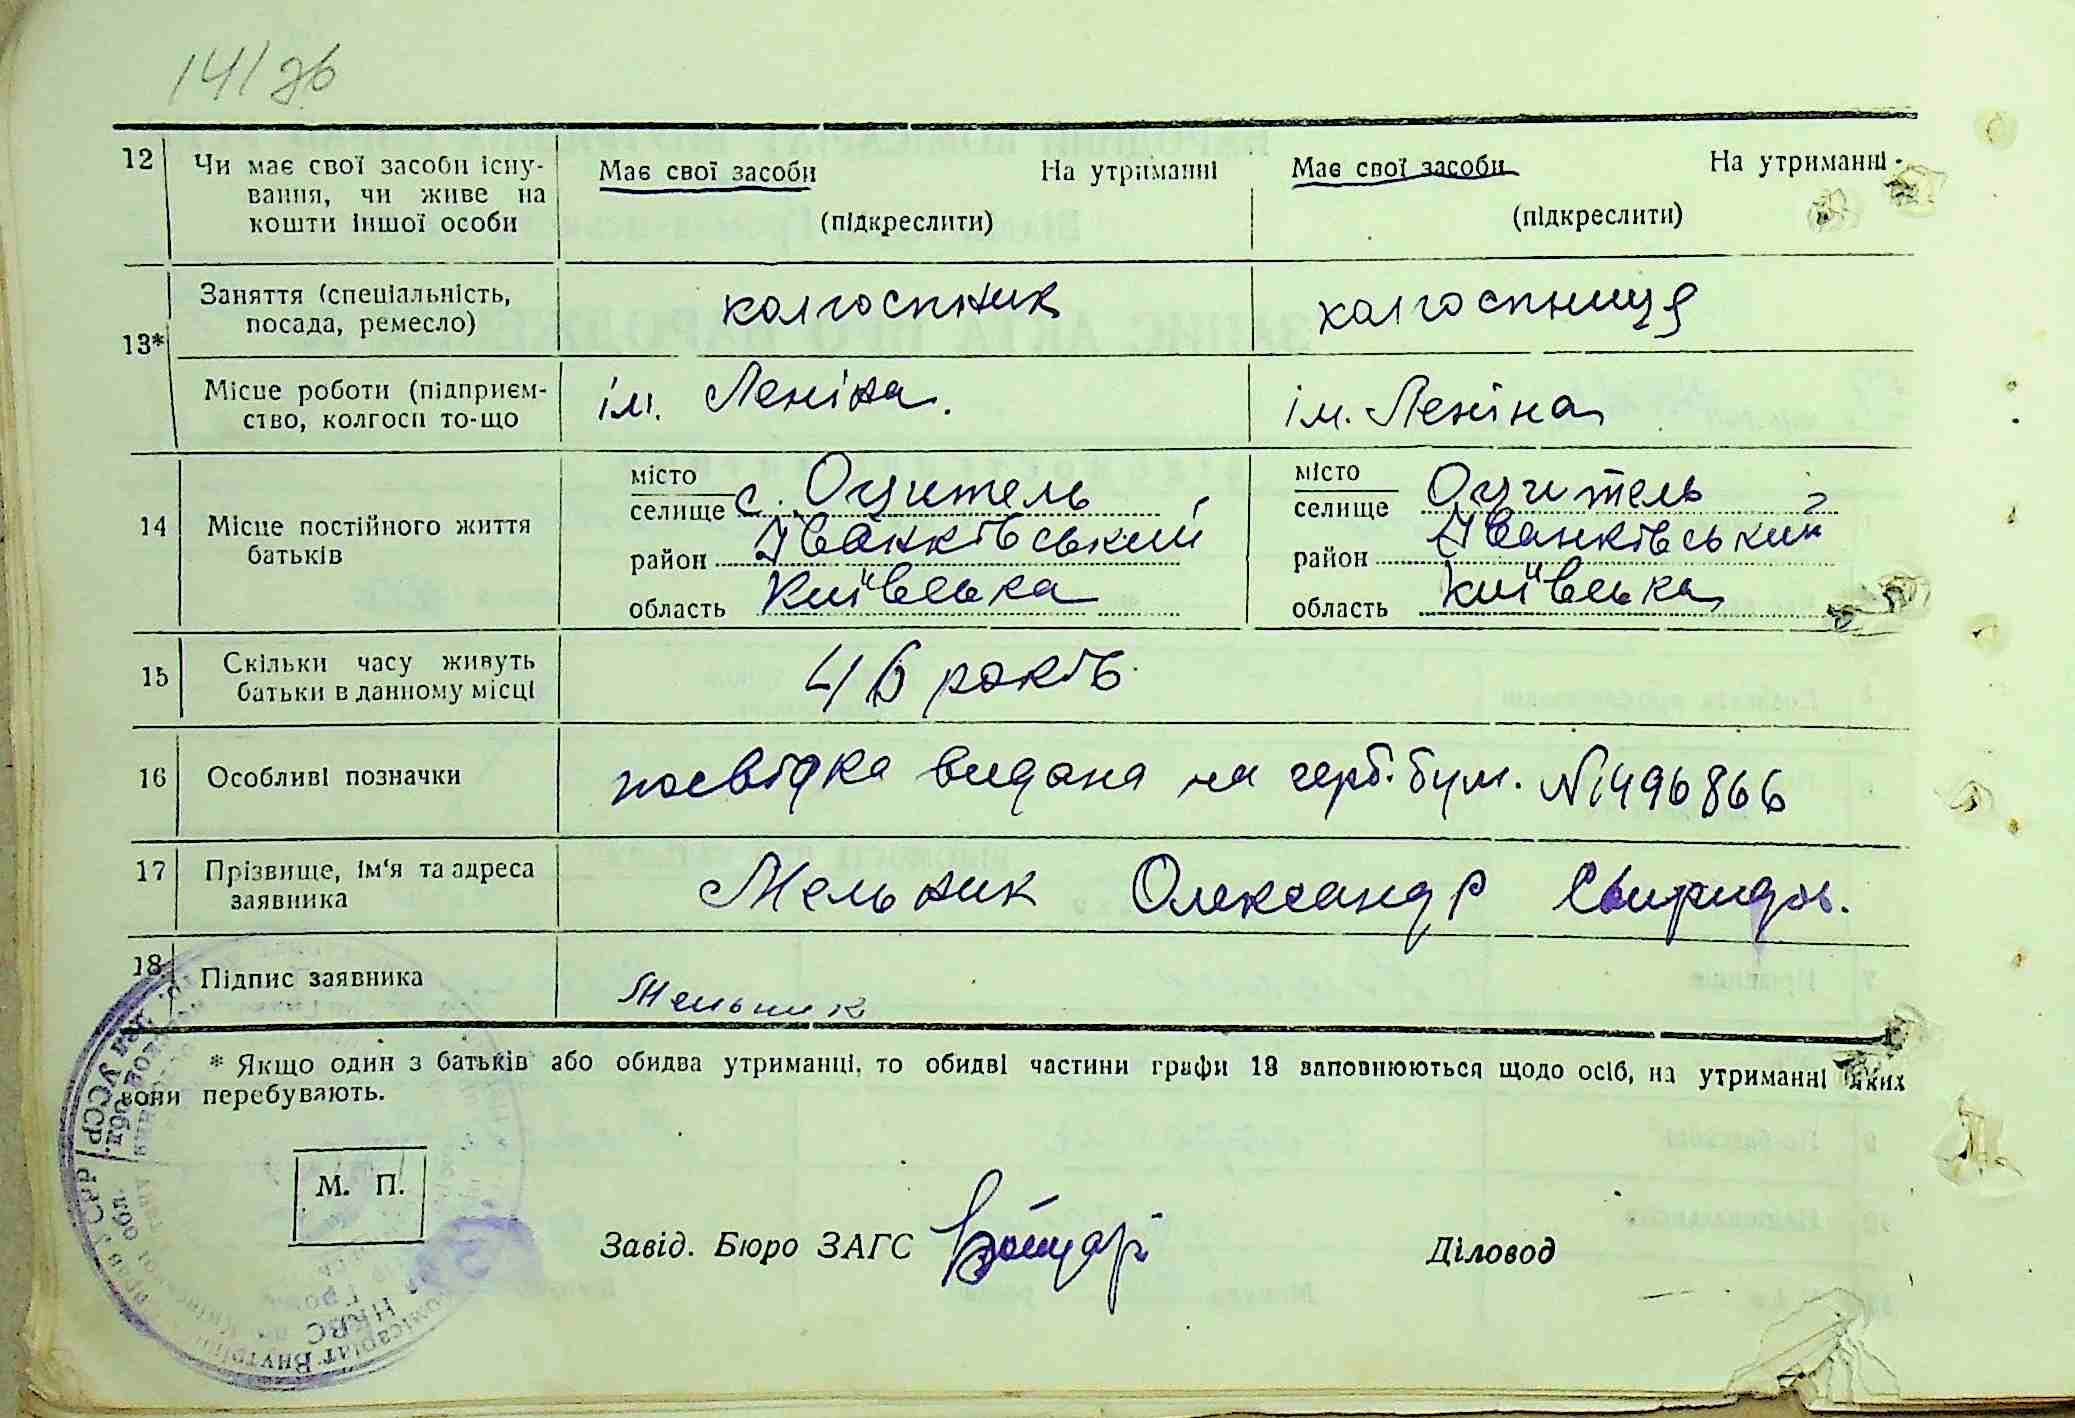 141/зв
12 Чи має свої засоби існу- Має свої засоби На утриманні Має свої засоби На утриманні
вання, чи живе на
кошти іншої особи (підкреслити) (підкреслити)
13* Заняття (спеціальність, колгоспник колгоспниця
посада, ремесло)
Місце роботи (підприєм- ім. Леніна. ім. Леніна
ство, колгосп то-що
14 Місце постійного життя
батьків
місто
селище с. Оцитель
район Іванківський
область Київська
місто
селище Оцитель
район Іванківський
область Київська
15 Скільки часу живуть 46 років.
батьки в данному місці
16 Особливі позначки посвідка видана на герб. бум. №496866
17 Прізвище, ім'я та адреса Мельник Олександр Свиридов.
заявника
18. Підпис заявника Мельник
* Якщо один з батьків або обидва утриманці, то обидві частини графи 13 заповнюються щодо осіб, на утриманні яких
вони перебувають.
М. П.
Завід. Бюро ЗАГС Діловод